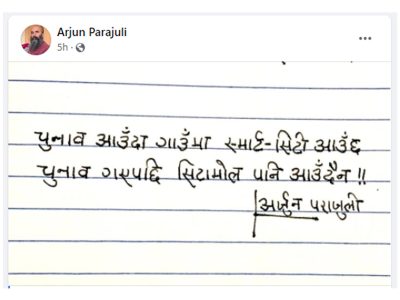 Arjun Parajuli
5h
चुनाव आउँदा गाउँमा स्मार्ट-सिटी आउँछ
चुनाव गएपछि सिटामोल पनि आउँदैन !!
अर्जुन पराजुली